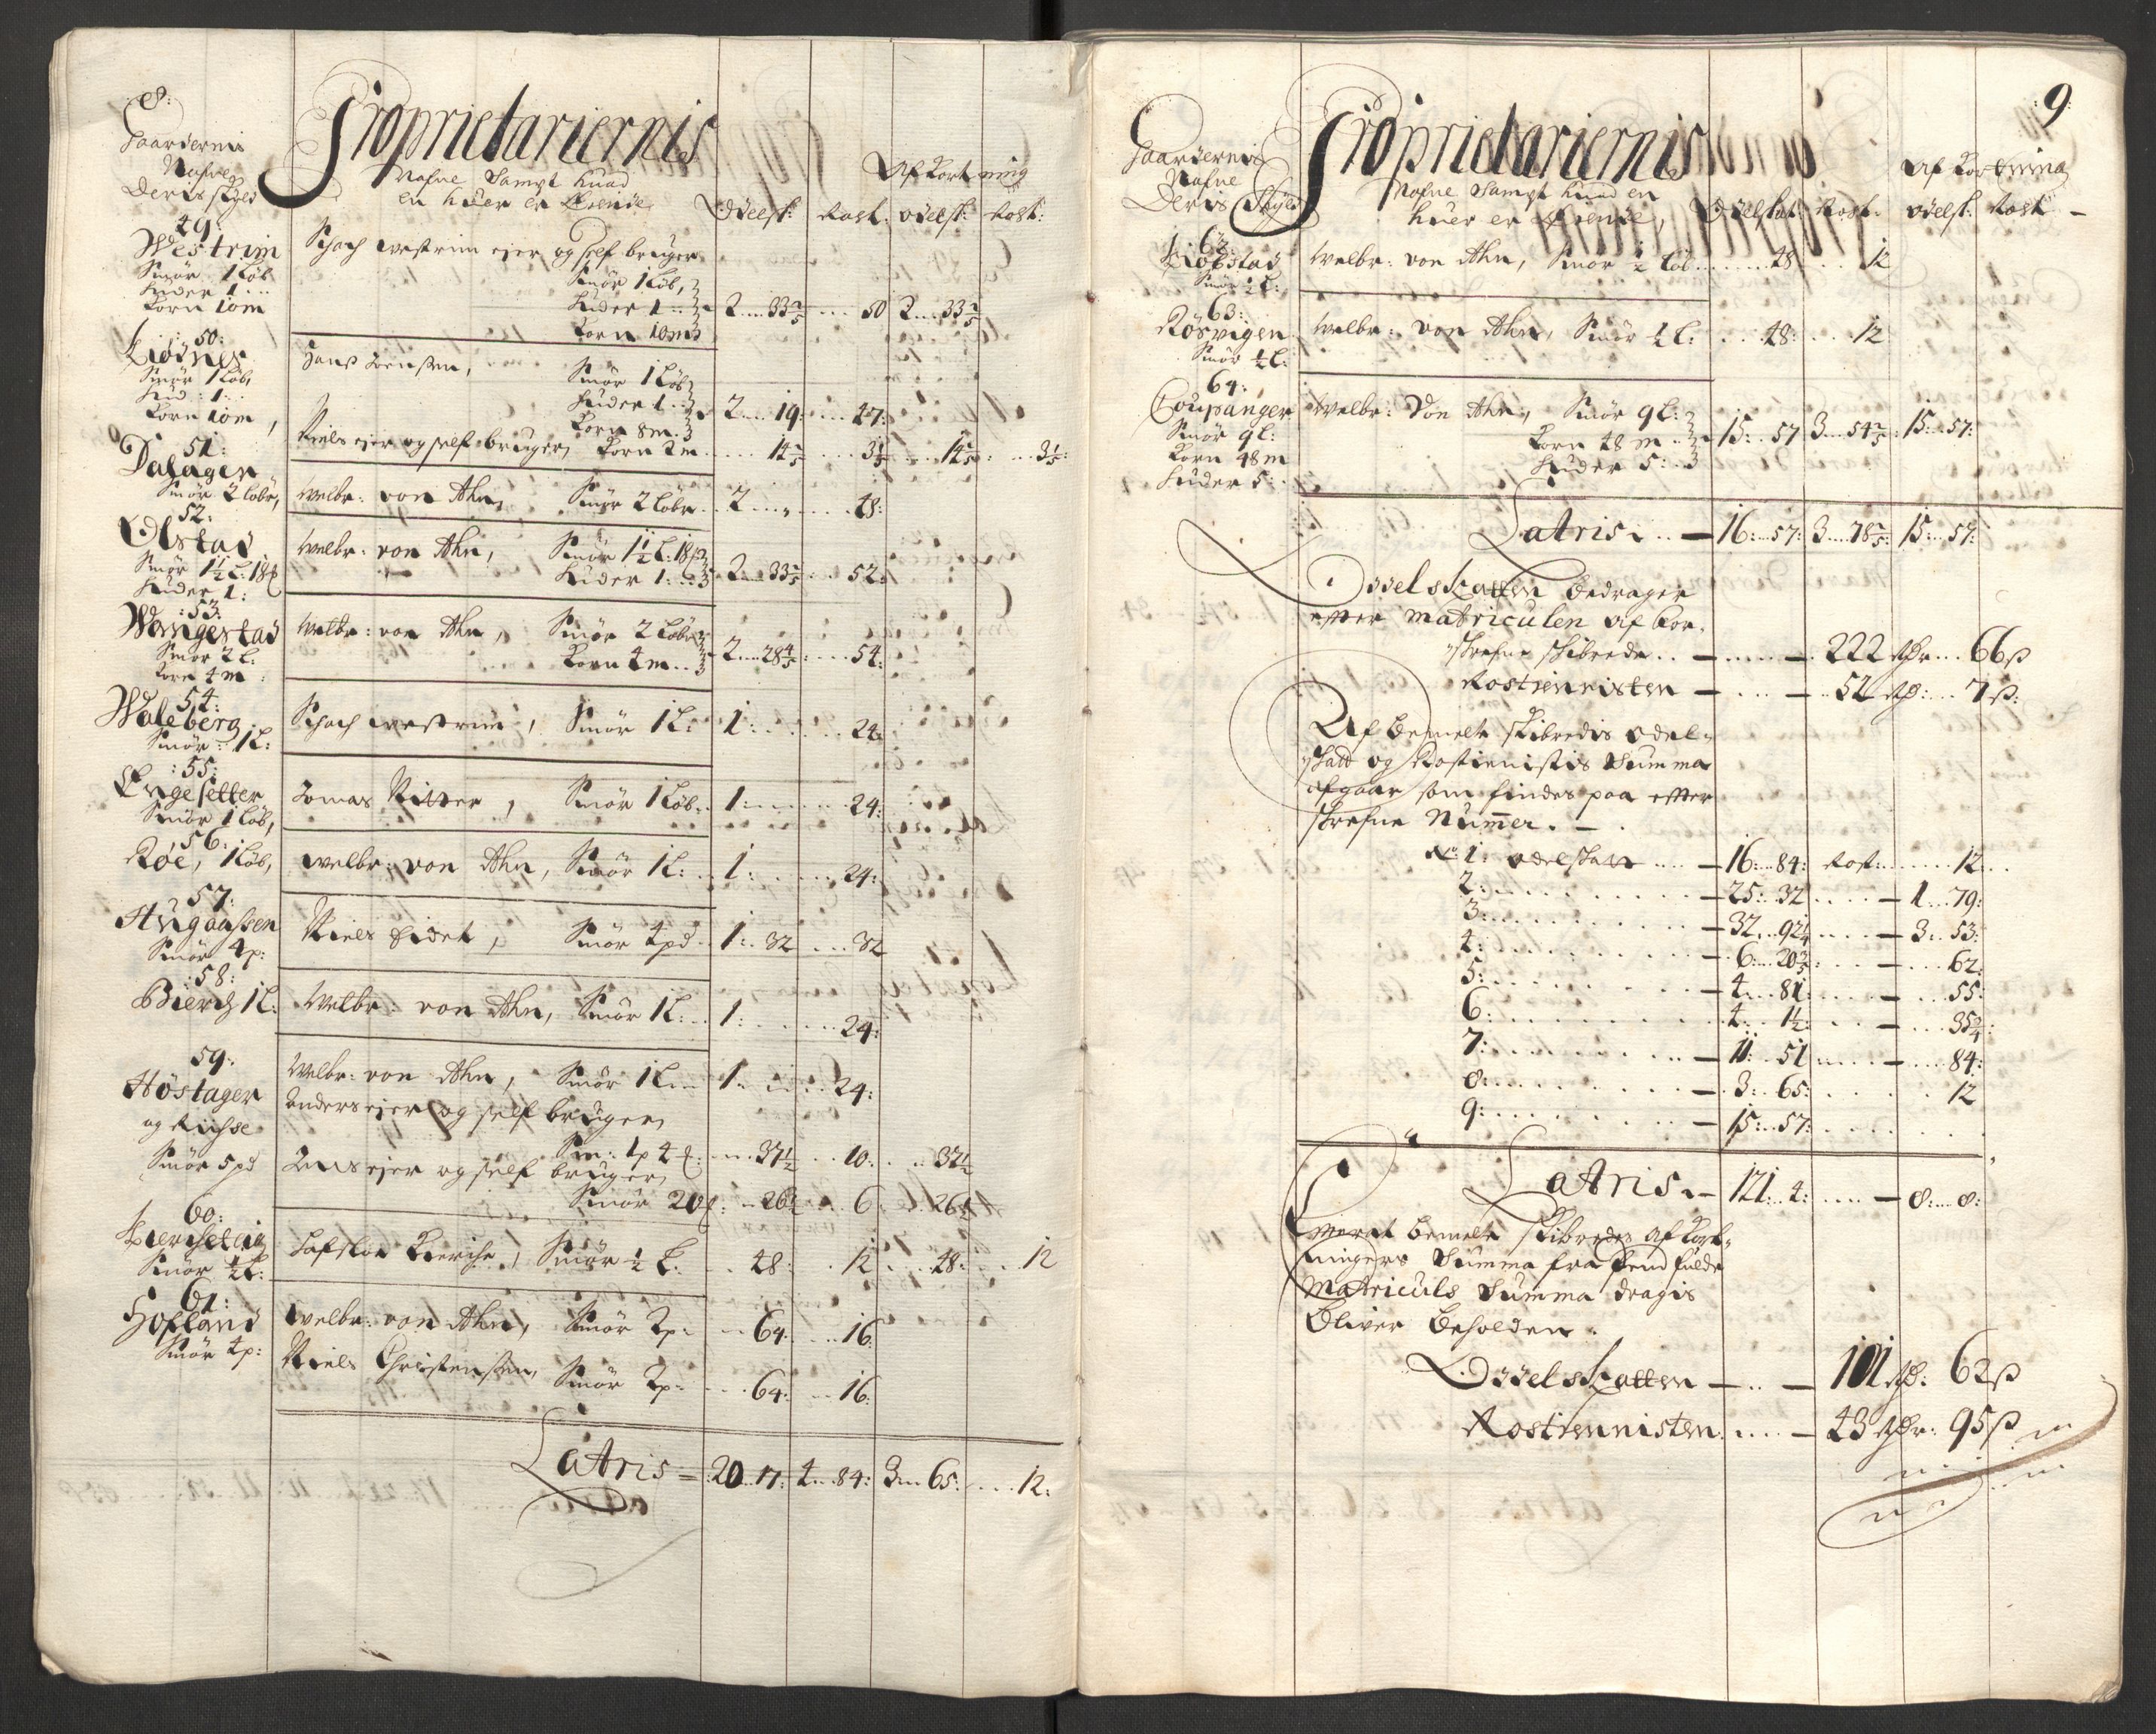 8:
Gaardernis
Nafne
Deris skyld
Proprietariernis
Nafne Sampt huad
en huer er Eiende
Afkortning
Odelsk: Rost: odelsk: Rost:
49:
Westrim
Smör 1 Löb
Huder 1
Korn 10m
Schach westrim ejer og self bruger
Smör 1 Löb,
Huder 1
Korn 10m
2 33 3/5 50 2 33 3/5
50:
Liösnes
Smör 1 Löb,
Hud: 1:
Korn 10m,
Hans Lorensen,
Smör 1 Löb
Huder 1
Korn 8m.
2 19: 47:
Niels ejer og self bruger, Korn 2m 14 2/5 3 1/5 14 2/5: 3 1/5:
51:
Dalagen
Smör 2 löber,
Welbr: von Ahn, Smör 2 Löber 2 48:
52:
Olstad
Smör 1 1/2 L: 18
Huder 1:
Welbr: von Ahn, Smör 1 1/2 L: 18
Huder 1:
2 33 3/5 52:
53:
Wangestad
Smör 2 L:
Korn 4m
Welbr: von Ahn, Smör 2 Löber
Korn 4m
2 28 4/5 54:
54:
Waleberg
Smör: 1L:
Schach westrim, Smör 1L: 1: 24:
55:
Engesetter
Smör 1 Löb,
Tomas Ritter, Smör 1 Löb: 1: 24:
56:
Röe, 1 Löb,
welbr: von Ahn, Smör 1L: 1: 24:
57:
Hugaassen
Smör 4p:
Niels Eidet, Smör 4pd 1: 32 32
58:
Bierch 1L:
Welbr: von Ahn, Smör 1L: 1: 24:
59:
Höstager
og Russe
Smör 5pd
Welbr: von Ahn, Smör 1L 1: 24:
Anders ejer og self bruger,
Sm: 1p 4 37 1/2 10: 37 1/2
Lars ejer og self bruger,
Smör 20 26 1/2 6 26 1/2
60:
Smör 1/2 L:
Lafslon Kierche, Smör 1/2 L: 48: 12 48: 12
61:
Hofland
Smör 4p:
Welbr: von Ahn, Smör 2p: 64: 16:
Niels Christensen, Smör 2p: 64: 16:
Latris = 20 17: 4 84: 3 65: 12:
9
Gaardernis
Nafne
Deris Skyld
Proprietariernis
Nafne Sampt huad en
huer er Eiende,
Afkortning
Odelskat: Rost: odelsk: Rost
62:
Smör 1/2 L:
Welbr: von Ahn, Smör 1/2 Löb 48 12
63:
Rösvigen
Smör 1/2 L:
Welbr: von Ahn, Smör 1/2 L: 48: 12
64:
Coupanger
Smör 9L:
Korn 48m
Huder 5:
Welbr: Von Ahn, Smör 9L:
Korn 48m
Huder 5:
15: 57 3 54 3/5: 15: 57:
Latris: 16: 57: 3 78 3/5: 15: 57:
Odelskatten bedrager
efter Matriculen af for:
skrefne skibrede 222 Rdr 66 ß
Rostiennisten 52 Rd: 7 ß:
Af bemelte skibredis odel-
skatt og Rostienistis Summa
afgaar som findes paa efter
skrefne Nummer.
No 1: odelskatt 16: 84: Rost: 12:
2: 25: 32 1 79:
3: 32 92 1/4 3: 53:
4: 6: 20 3/5: 62:
5: 4 81: 55:
6: 4: 1 1/2: 35 3/4:
7: 11: 51 84:
8: 3: 65: 12
9: 15: 57:
Latris: 121: 4: 8: 8:
Hvorat bemelte skibredes afkort-
ningers Summa fra dend fulde
Matriculs Summa dragis
bliver beholden:
Odelskatten 101 Rd: 62 ß
Rostiennisten 43 Rdr: 95 ß